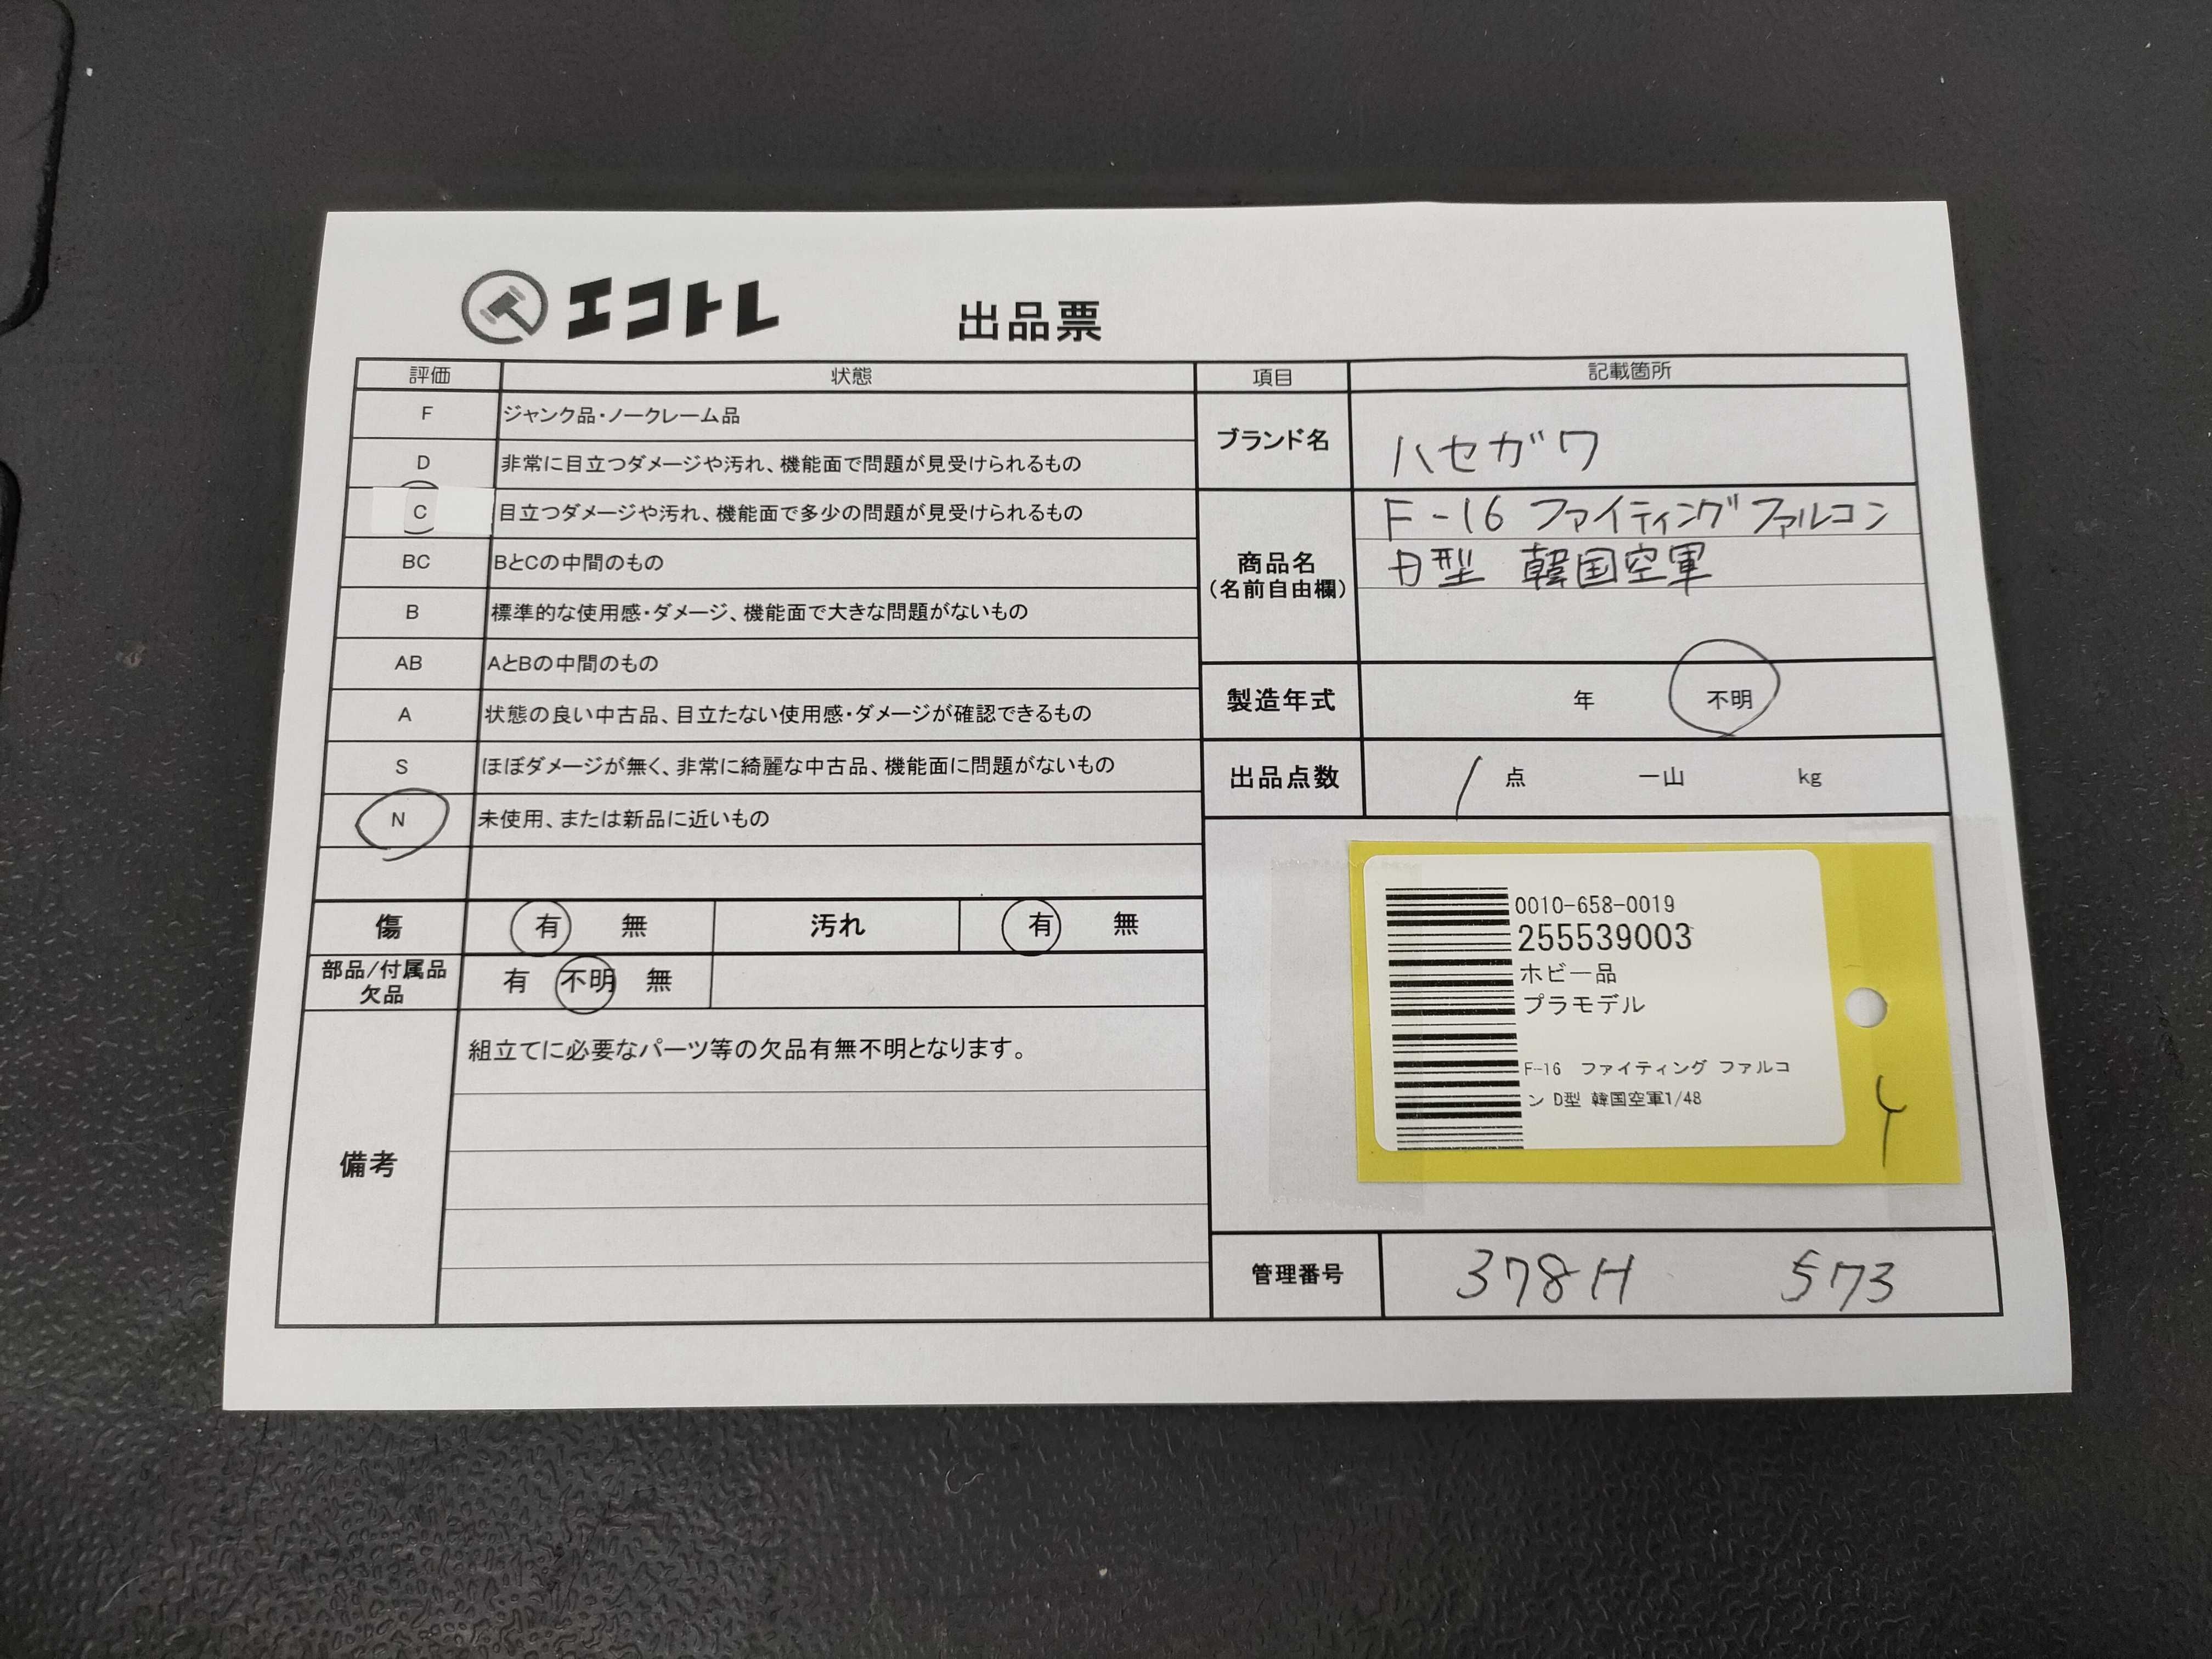 エコトレ 出品票
評価 状態
F ジャンク品・ノークレーム品
D 非常に目立つダメージや汚れ、機能面で問題が見受けられるもの
C 目立つダメージや汚れ、機能面で多少の問題が見受けられるもの
BC BとCの中間のもの
B 標準的な使用感・ダメージ、機能面で大きな問題がないもの
AB AとBの中間のもの
A 状態の良い中古品、目立たない使用感・ダメージが確認できるもの
S ほぼダメージが無く、非常に綺麗な中古品、機能面に問題がないもの
N 未使用、または新品に近いもの
傷 有 無 汚れ 有 無
部品/付属品
欠品
有 不明 無
備考
組立てに必要なパーツ等の欠品有無不明となります。
項目 記載箇所
ブランド名 ハセガワ
商品名
(名前自由欄)
F-16 ファイティングファルコン
D型 韓国空軍
製造年式 年 不明
出品点数 1 点 一山 kg
0010-658-0019
255539003
ホビー品
プラモデル
F-16 ファイティング ファルコ
ン D型 韓国空軍1/48
管理番号 378H 573